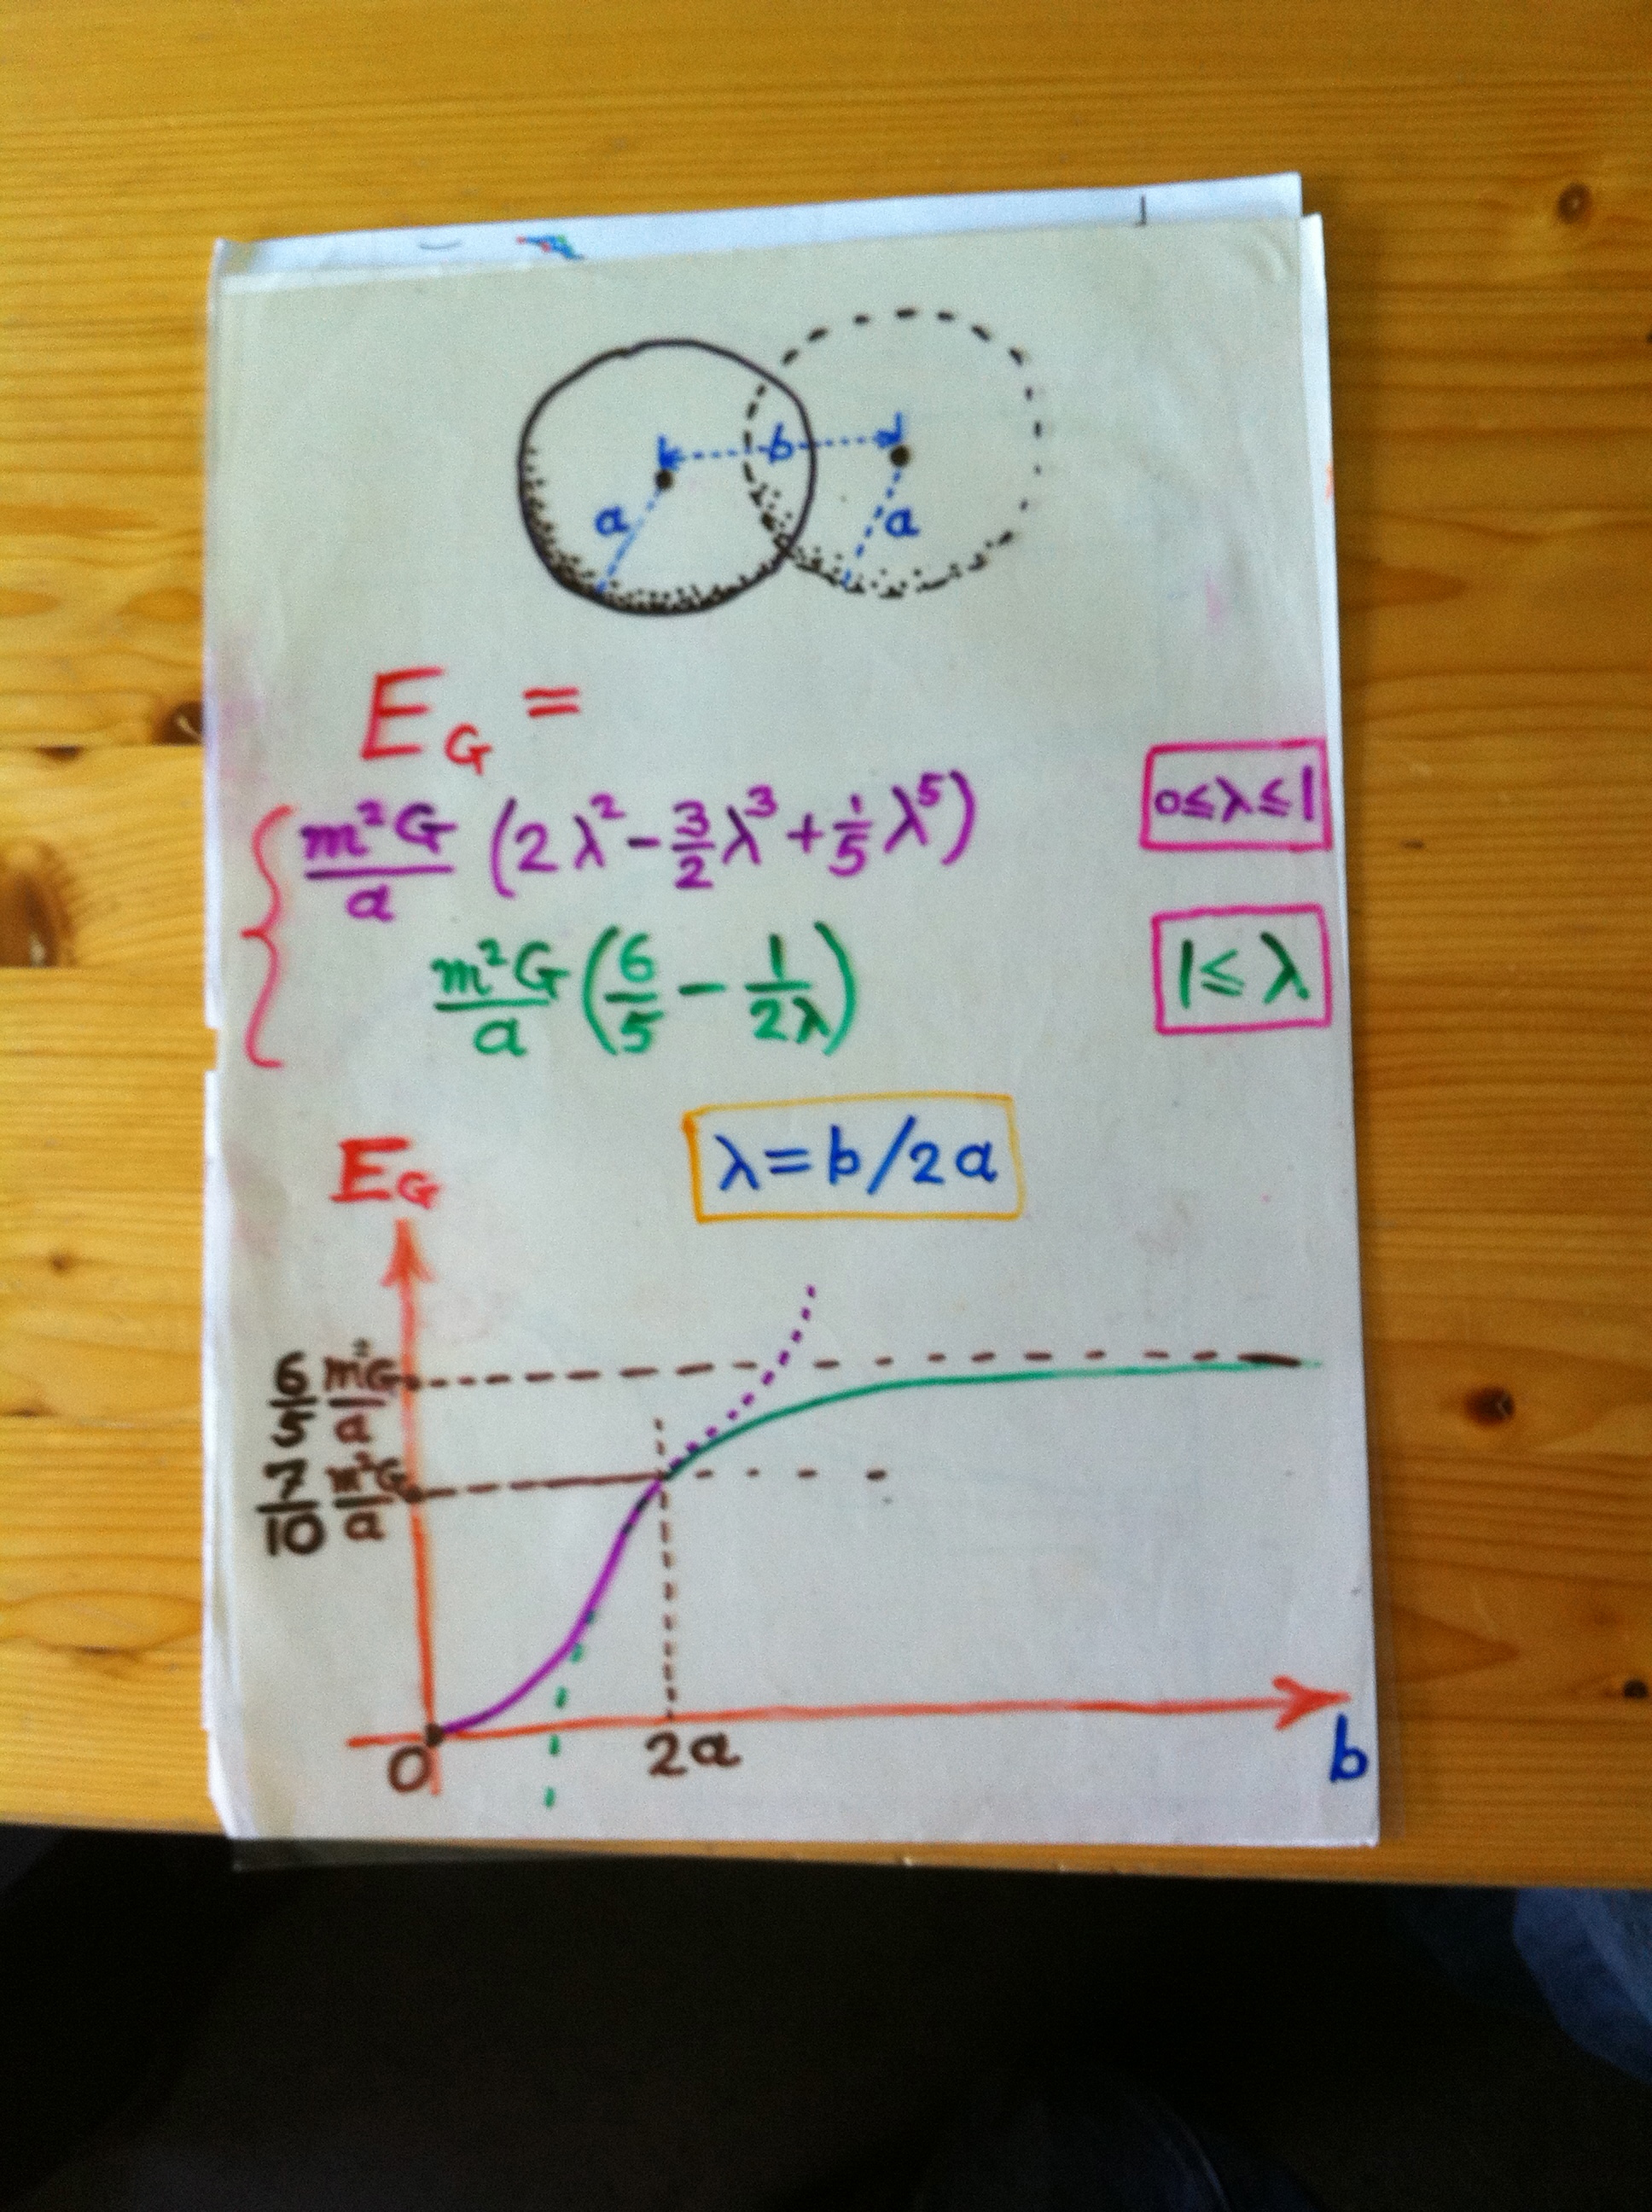 b
a a
E_G =
m²G/a (2λ² - 3/2 λ³ + 1/5 λ⁵) 0≤λ≤1
m²G/a (6/5 - 1/2λ) 1≤λ
λ=b/2a
E_G
6/5 m²G/a
7/10 m²G/a
0 2a b